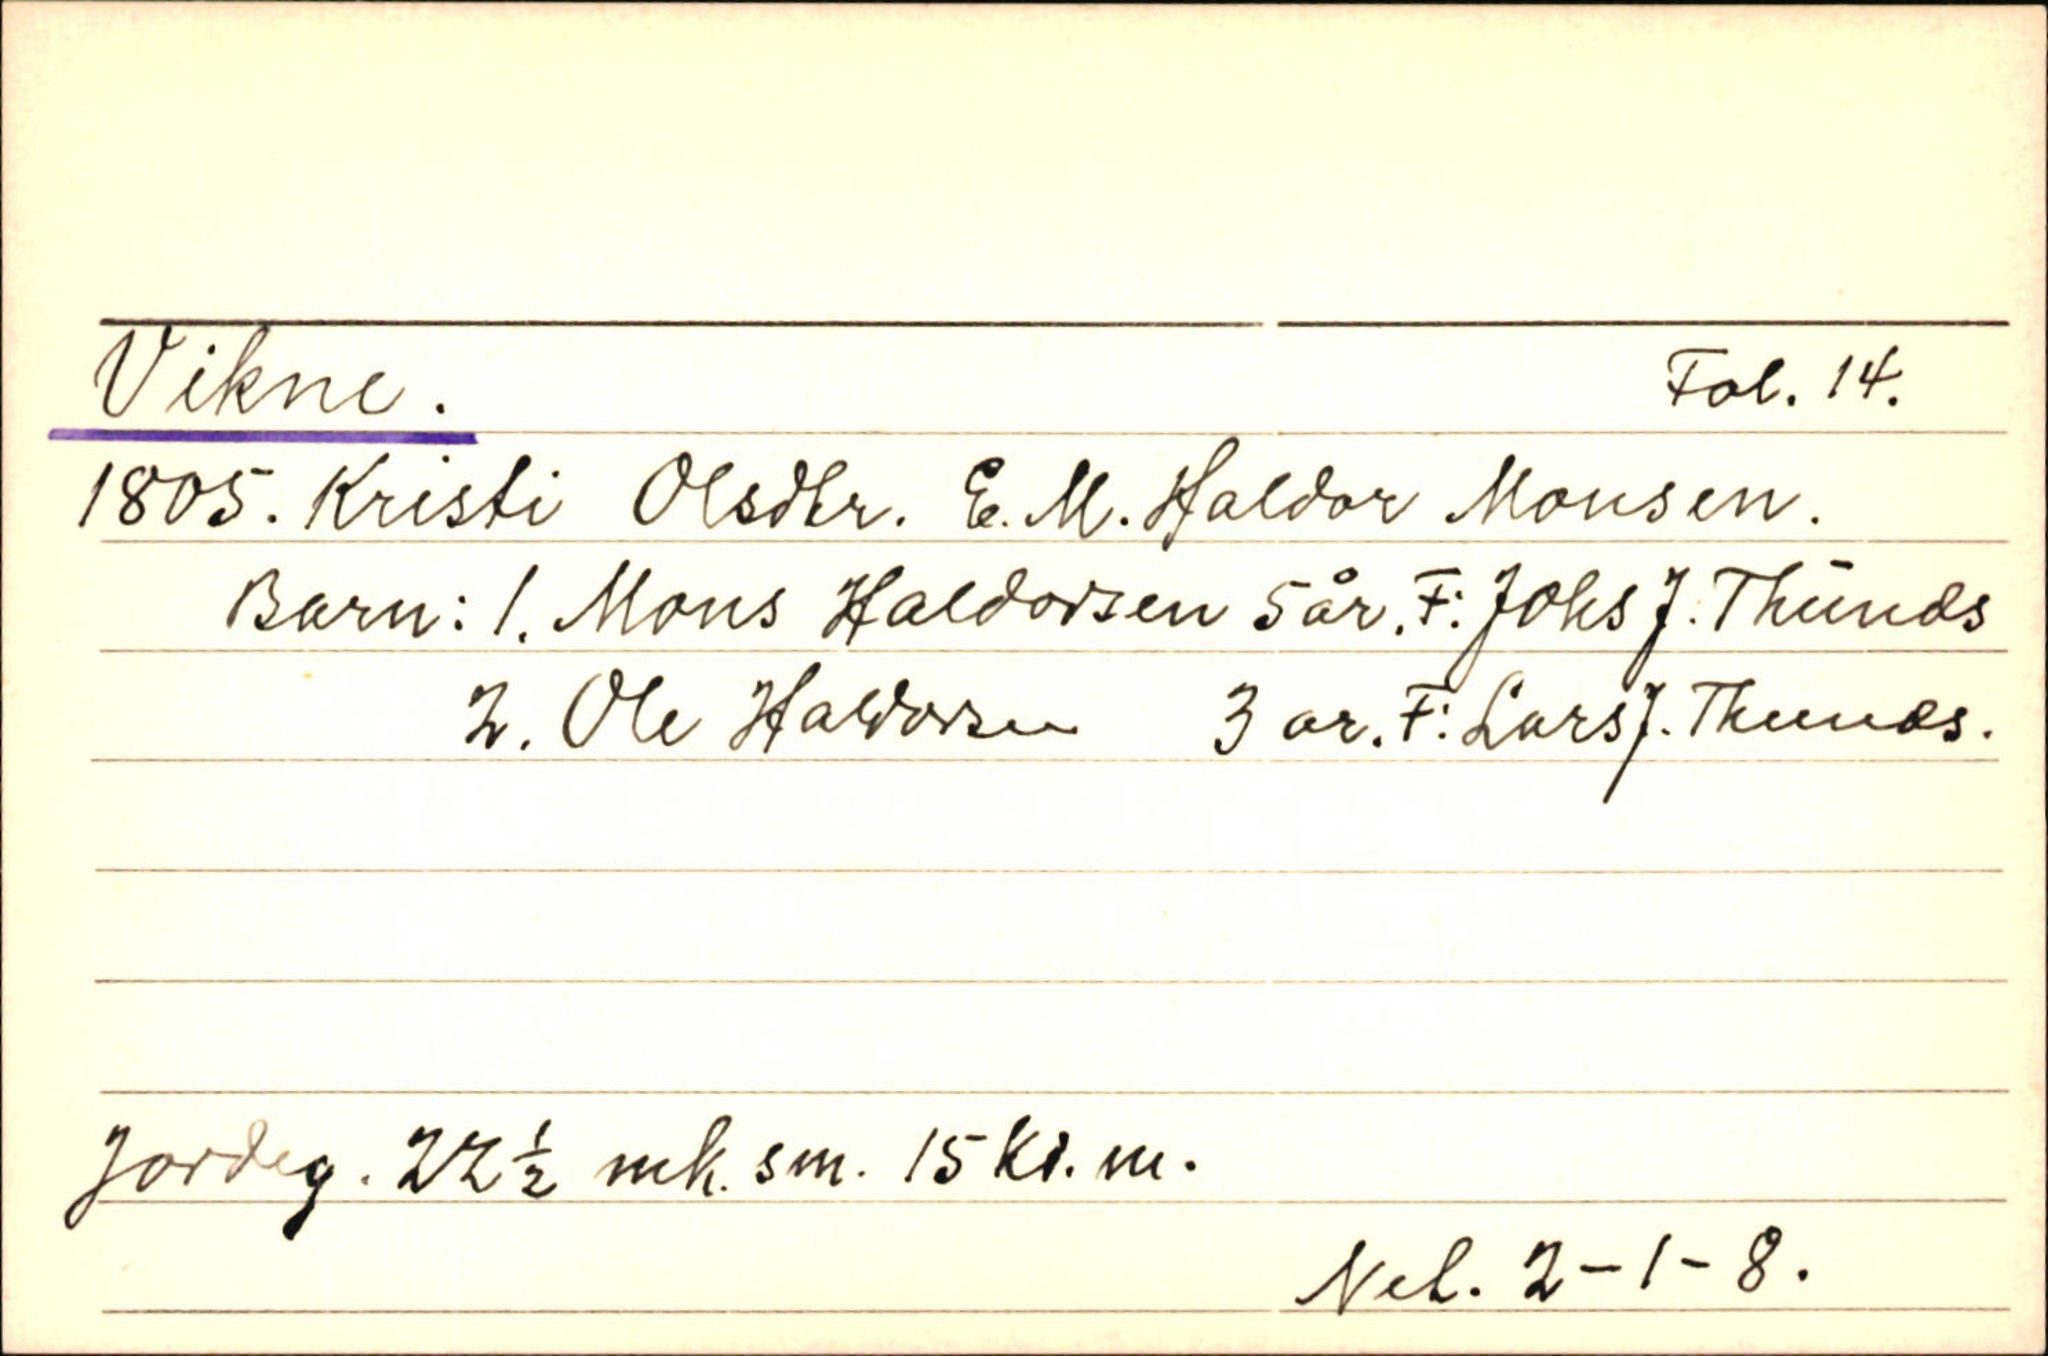 Vikne. Fol. 14.
1805. Kristi Olsdtr. E. M. Haldor Monsen.
Barn: 1. Mons Haldorsen 5 år. F: Johs J. Thunæs
2. Ole Haldorsen 3 ar. F: Lars J. Thunæs.
Jordeg. 22 1/2 mk. sm. 15 Kr. m.
Net. 2-1-8.